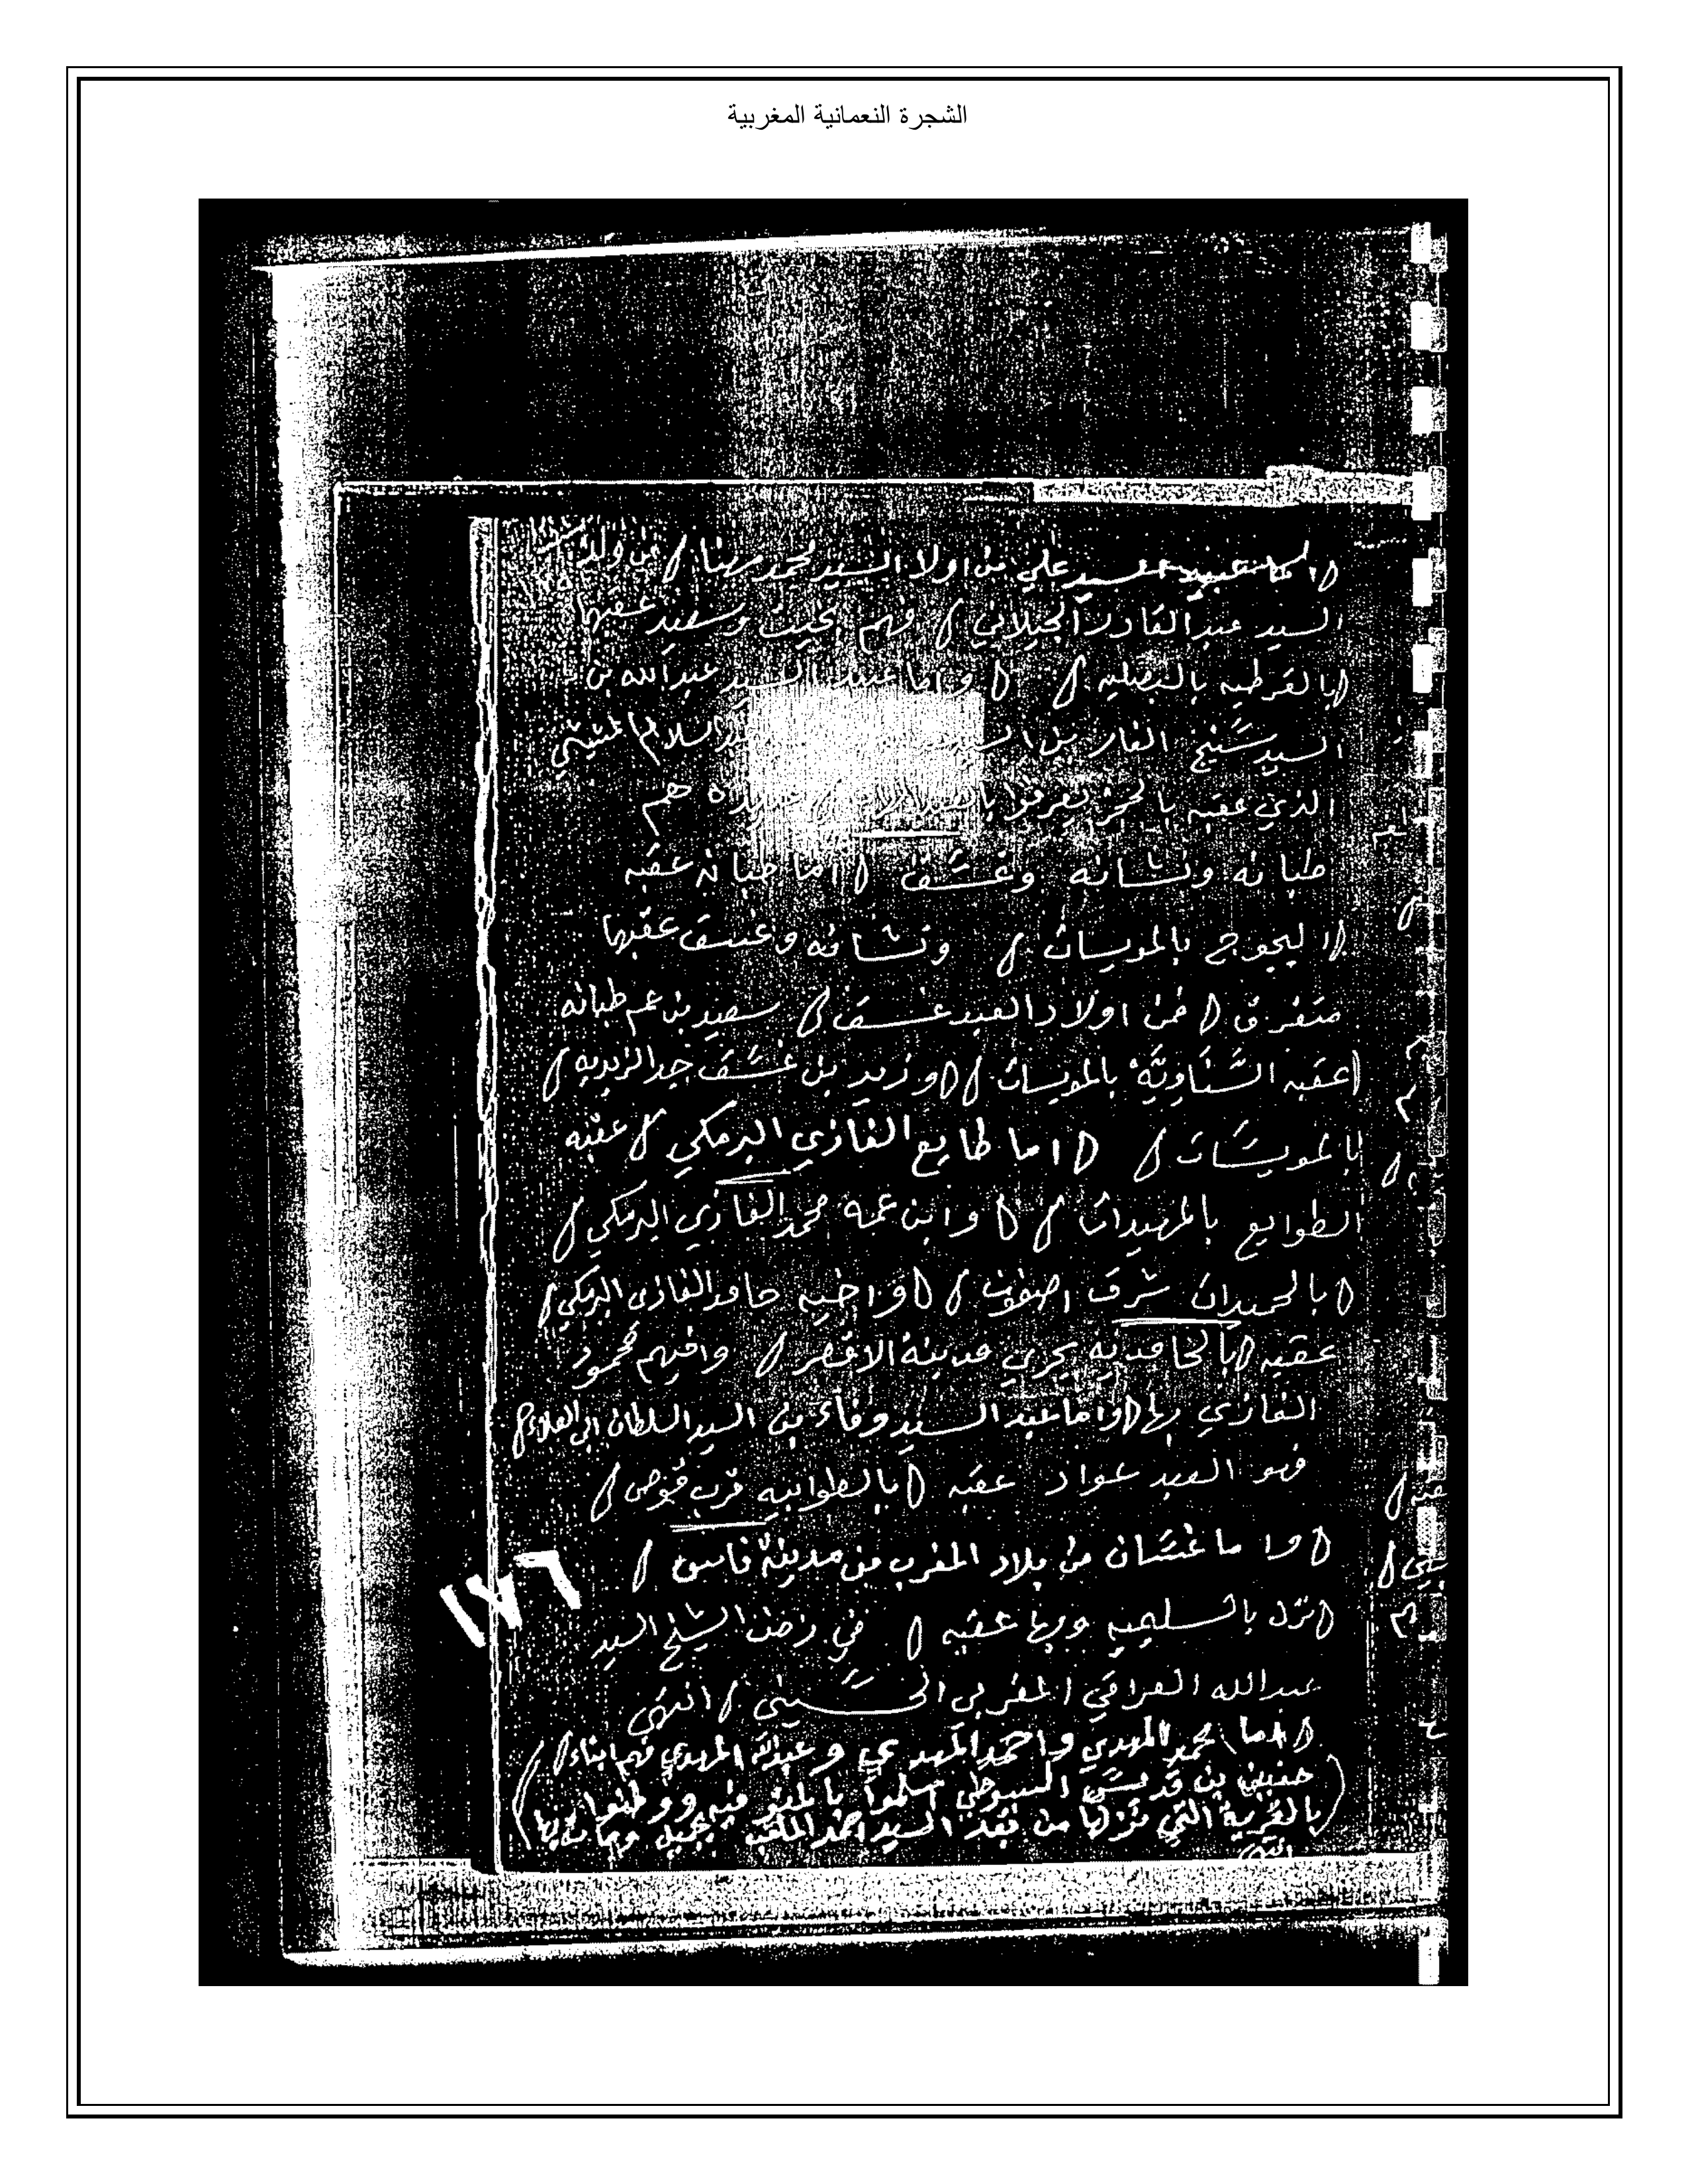 الشجرة النعمانية المغربية
اما عبيد السيد علي من اولا السيد محمد مهنا من ولد
السيد عبد القادر الجيلاني فهم بخيت وسعيد عقبها
بالقرطيه بالبصليه واما عبيد السيد عبدالله بن
السيد الفار بن السيد
الذي عقبه هم
طبانه ونشانه وغسق اما طبانه عقبه
اليجوج بالمويسات ونشانه وغسق عقبها
متفرق فمن اولاد العبد غسق سعيد بن عم طبانه
عقبه الشناويّة بالمويسات وزيد بن غسق جد الزيديه
بالمويسات اما طايع الغازي البرمكي عقبه
الطوايع بالمهيدات وابن عمه محمد الغازي البرمكي
بالحميدات شرق اصفون واخيه حامد الغازى البرمكي
عقبه بالحامديه بحري مدينة الاقصر واخيهم محمود
الغازي بها واما عبد السيد وفاء بن السيد السلطان ابي العلاء
فهو العبد عواد عقبه بالطوابيه قرب قوص
واما غسان من بلاد المغرب من مدينة فاس
١٧٦
نزل بالسلميه وبها عقبه في زمن الشيخ السيد
عبدالله العراقي المغربي الحسيني انتهى
اما محمد المهدي واحمد المهدي وعبدالله المهدي فهم ابناء
حفيني بن قديس السيوطي اسلموا ووطنوا
بالقرية التي نزلها من بعد السيد احمد الملقب بجميل ومات بها
انتهى